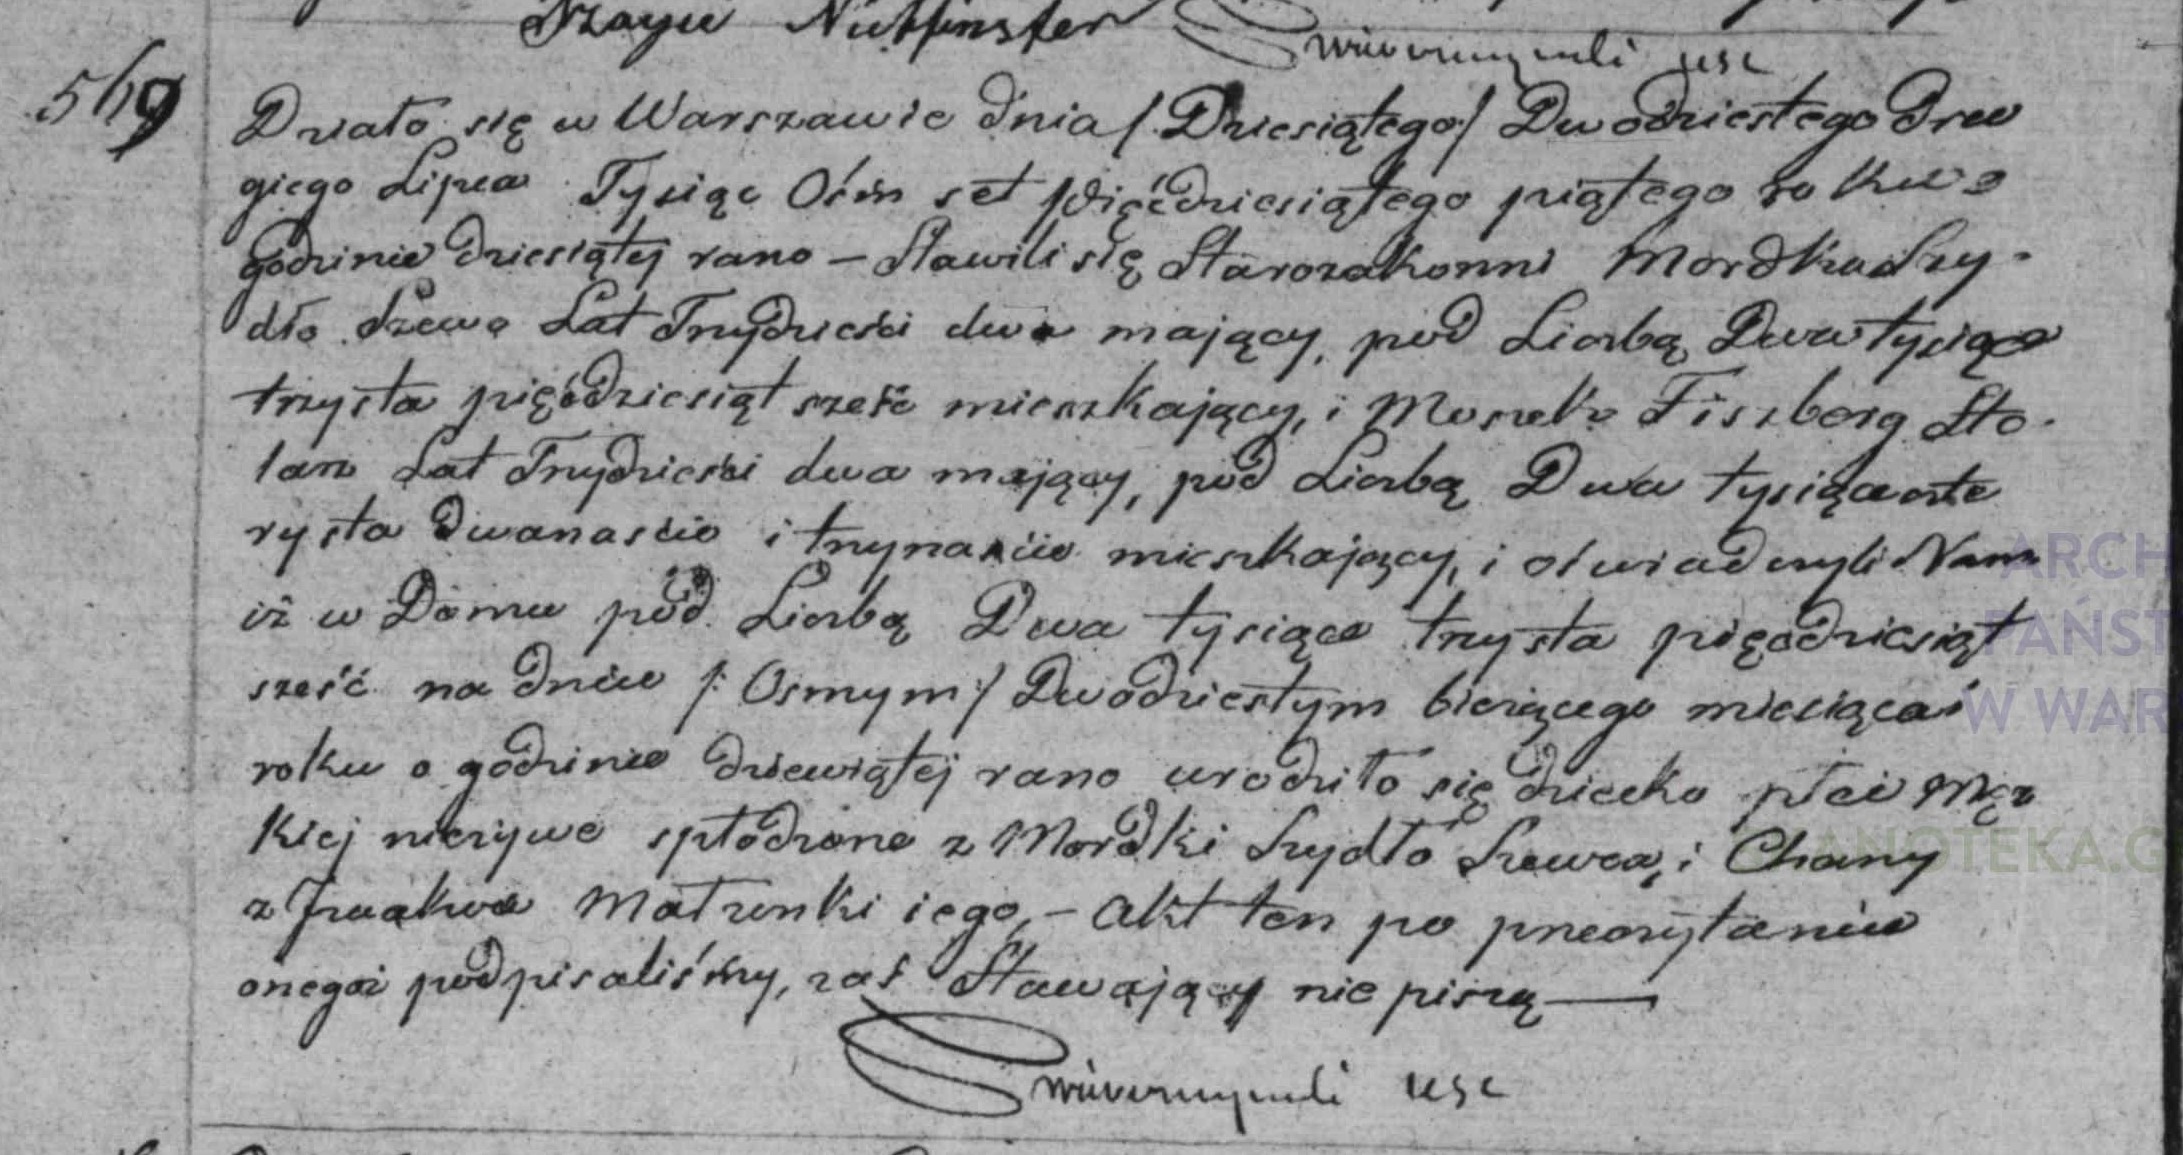 Szayu
569
Działo się w Warszawie dnia /:Dziesiątego:/ Dwudziestego dru
giego Lipca Tysiąc Ośm set pięćdziesiątego piątego roku o
godzinie dziesiątej rano – Stawili się Starozakonni Mordka Szy-
dło Szewc Lat Trzydzieści dwa mający, pod Liczbą Dwa tysiące
trzysta pięćdziesiąt sześć mieszkający, i Moszek Fiszberg Sto-
larz Lat Trzydzieści dwa mający, pod Liczbą Dwa tysiące czte
rysta dwanaście i trzynaście mieszkający, i oświadczyli Nam
iż w Domu pod Liczbą Dwa tysiące trzysta pięćdziesiąt
sześć na dniu /: Osmym :/ Dwudziestym bieżącego miesiąca i
roku o godzinie dziewiątej rano urodziło się dziecko płci Męz
kiej nieżywe spłodzone z Mordki Szydło Szewca, i Chany
z Małżonki iego, – Akt ten po przeczytaniu
onegoż podpisaliśmy, zaś Stawający nie piszą —
USC
ARCH
PAŃST
W WAR